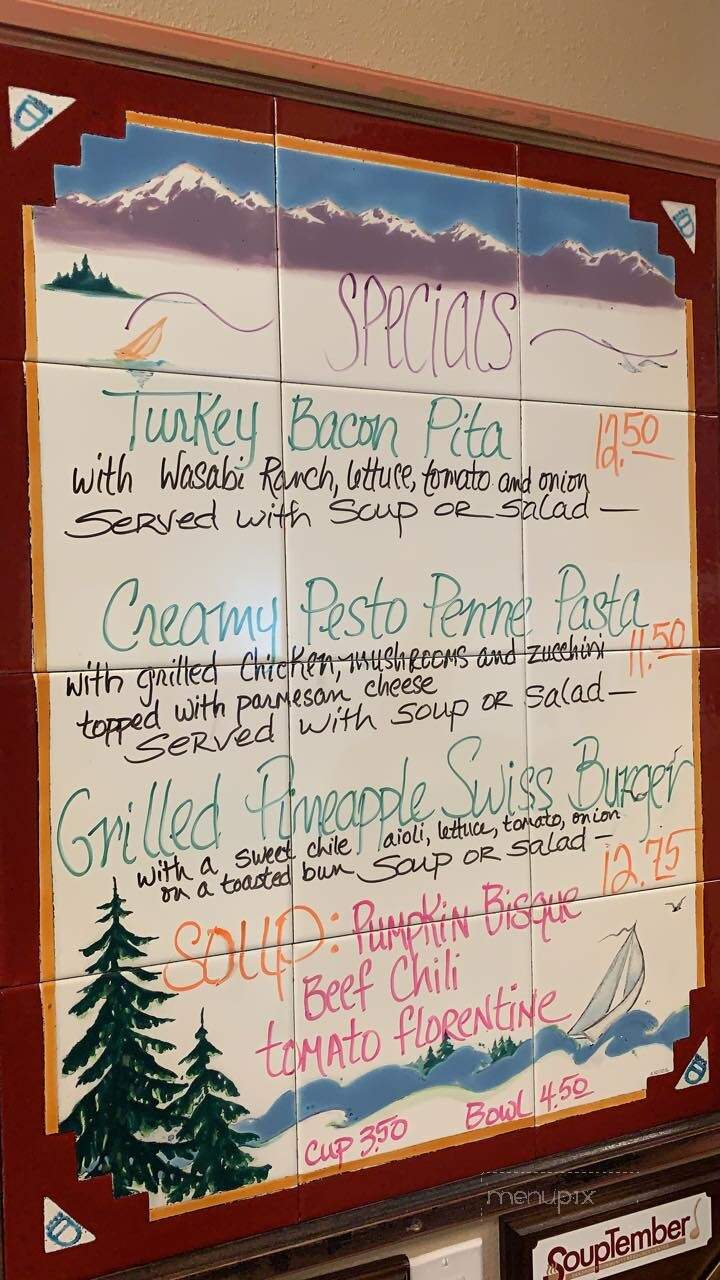 Specials
Turkey Bacon Pita 12.50
with Wasabi Ranch, lettuce, tomato and onion
Served with Soup OR Salad —
Creamy Pesto Penne Pasta
with grilled Chicken, mushrooms and zucchini 11.50
topped with parmesan cheese
Served with Soup OR Salad —
Grilled Pineapple Swiss Burger
with a sweet chile aioli, lettuce, tomato, onion
on a toasted bun Soup OR Salad — 12.75
SOUP: Pumpkin Bisque
Beef Chili
tomato florentine
Cup 3.50 Bowl 4.50
menupix
SoupTember